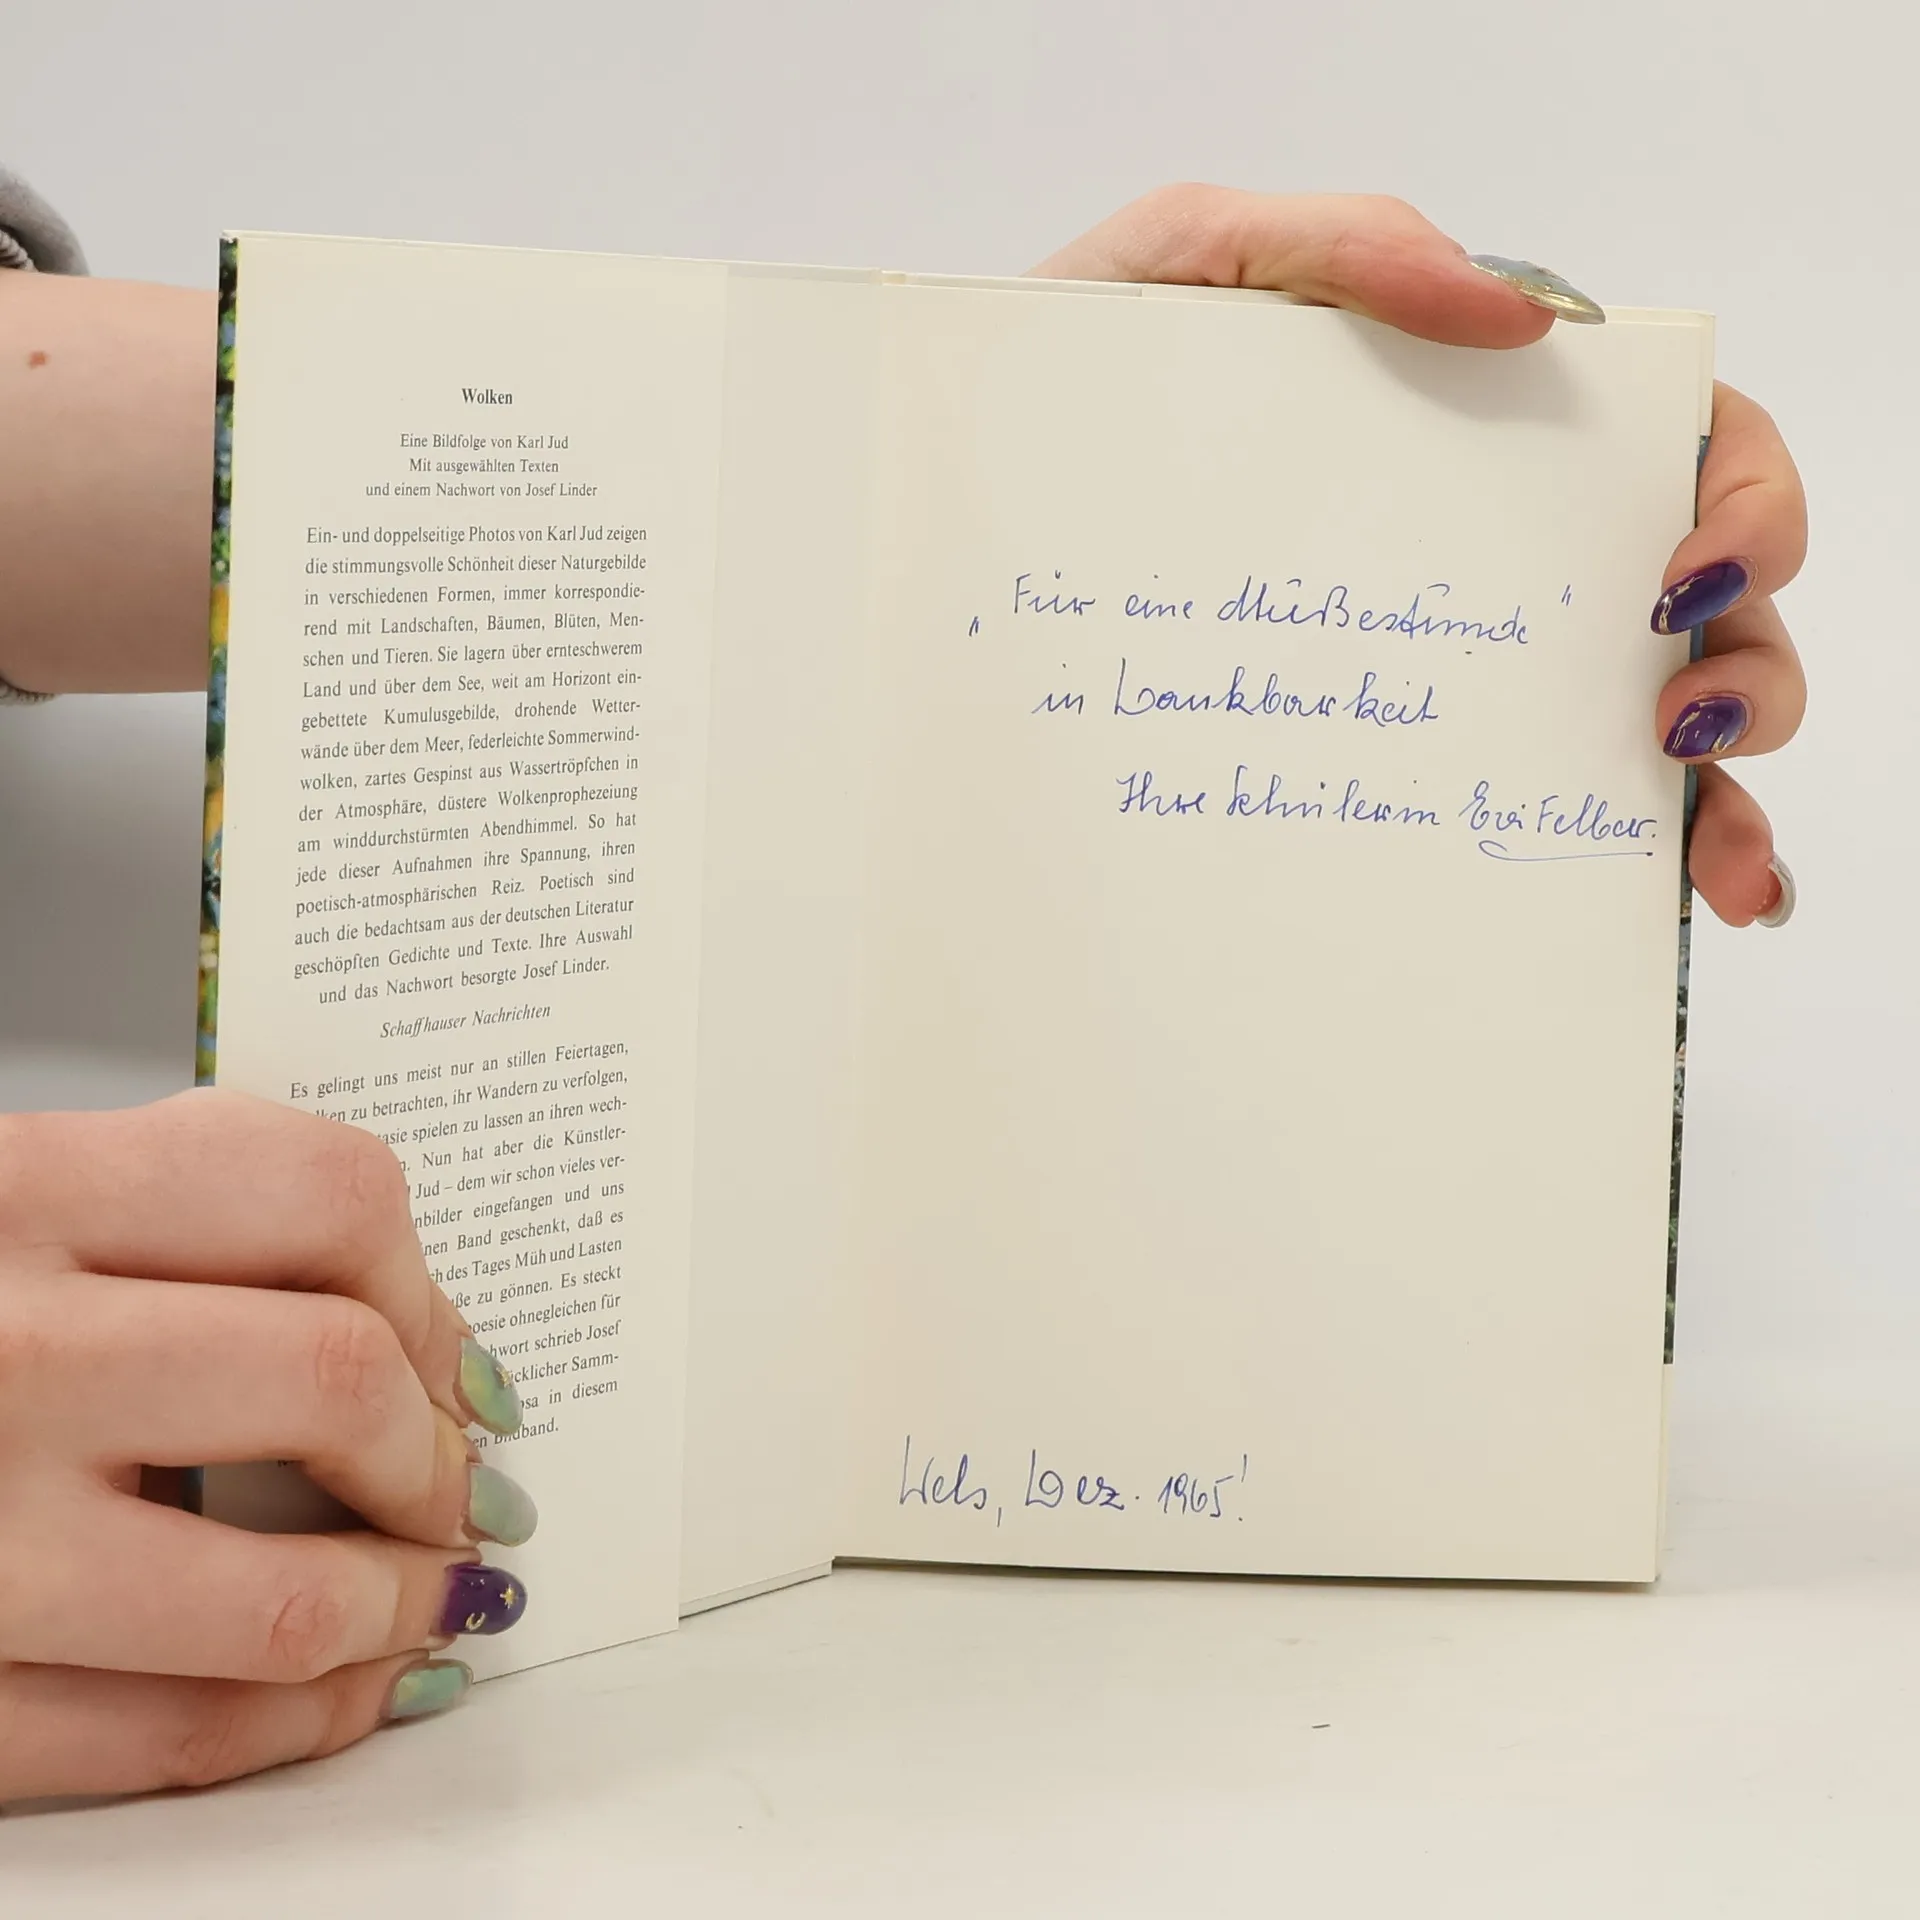 Wolken
Eine Bildfolge von Karl Jud
Mit ausgewählten Texten
und einem Nachwort von Josef Linder
Ein- und doppelseitige Photos von Karl Jud zeigen
die stimmungsvolle Schönheit dieser Naturgebilde
in verschiedenen Formen, immer korrespondie-
rend mit Landschaften, Bäumen, Blüten, Men-
schen und Tieren. Sie lagern über ernteschwerem
Land und über dem See, weit am Horizont ein-
gebettete Kumulusgebilde, drohende Wetter-
wände über dem Meer, federleichte Sommerwind-
wolken, zartes Gespinst aus Wassertröpfchen in
der Atmosphäre, düstere Wolkenprophezeiung
am winddurchstürmten Abendhimmel. So hat
jede dieser Aufnahmen ihre Spannung, ihren
poetisch-atmosphärischen Reiz. Poetisch sind
auch die bedachtsam aus der deutschen Literatur
geschöpften Gedichte und Texte. Ihre Auswahl
und das Nachwort besorgte Josef Linder.
Schaffhauser Nachrichten
Es gelingt uns meist nur an stillen Feiertagen,
zu betrachten, ihr Wandern zu verfolgen,
spielen zu lassen an ihren wech-
Nun hat aber die Künstler-
Jud – dem wir schon vieles ver-
eingefangen und uns
Band geschenkt, daß es
des Tages Müh und Lasten
zu gönnen. Es steckt
ohnegleichen für
schrieb Josef
Samm-
in diesem
„Für eine Mußestunde"
in Dankbarkeit
Ihre Schülerin Evi Felber.
Wels, Dez. 1965!